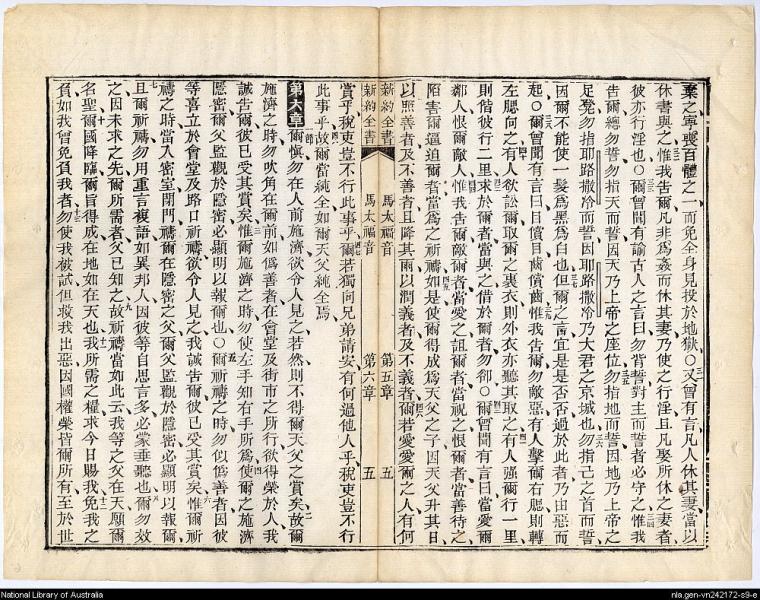 棄之寧喪百體之一而免全身見投於地獄○又曾有言凡人休其妻當以
休書與之惟我告爾凡非為姦而休其妻乃使之行淫且凡娶所休之妻者
彼亦行淫也○爾曾聞有諭古人之言曰勿背誓對主而誓者必守之惟我
告爾總勿誓勿指天而誓因天乃上帝之座位勿指地而誓因地乃上帝之
足凳勿指耶路撒冷而誓因耶路撒冷乃大君之京城也勿指己之首而誓
因爾不能使一髮為黑為白也但爾之言宜是是否否過於此者乃由惡而
起○爾曾聞有言曰目償目齒償齒惟我告爾勿敵惡有人擊爾右腮則轉
左腮向之有人欲訟爾取爾之裏衣則外衣亦聽其取之有人強爾行一里
則偕彼行二里求於爾者當與之借於爾者勿卻○爾曾聞有言曰當愛爾
鄰人恨爾敵人惟我告爾敵爾者當愛之詛爾者當祝之恨爾者當善待之
陷害爾逼迫爾者當為之祈禱如是使爾得成為天父之子因天父升其日
以照善者及不善者且降其雨以潤義者及不義者爾若愛愛爾之人有何
新約全書 馬太福音 第五章 五
新約全書 馬太福音 第六章 五
賞乎稅吏豈不行此事乎爾若獨向兄弟請安有何過他人乎稅吏豈不行
此事乎故爾當純全如爾天父純全焉
第六章 爾慎勿在人前施濟欲令人見之若然則不得爾天父之賞矣故爾
施濟之時勿吹角在爾前如偽善者在會堂及街市之所行欲得榮於人我
誠告爾彼已受其賞矣惟爾施濟之時勿使左手知右手所為使爾之施濟
隱密爾父監觀於隱密必顯明以報爾也○爾祈禱之時勿似偽善者因彼
等喜立於會堂及路口祈禱欲令人見之我誠告爾彼已受其賞矣惟爾祈
禱之時當入密室閉門禱爾在隱密之父爾父監觀於隱密必顯明以報爾
且爾祈禱勿用重言複語如異邦人因彼等自思言多必蒙垂聽也爾勿效
之因未求之先爾所需者父已知之故祈禱當如此云我等之父在天願爾
名聖爾國降臨爾旨得成在地如在天也我所需之糧求今日賜我免我之
負如我曾免負我者勿使我被試但救我出惡因國權榮皆爾所有至於世
National Library of Australia
nla.gen-vn242172-s9-e